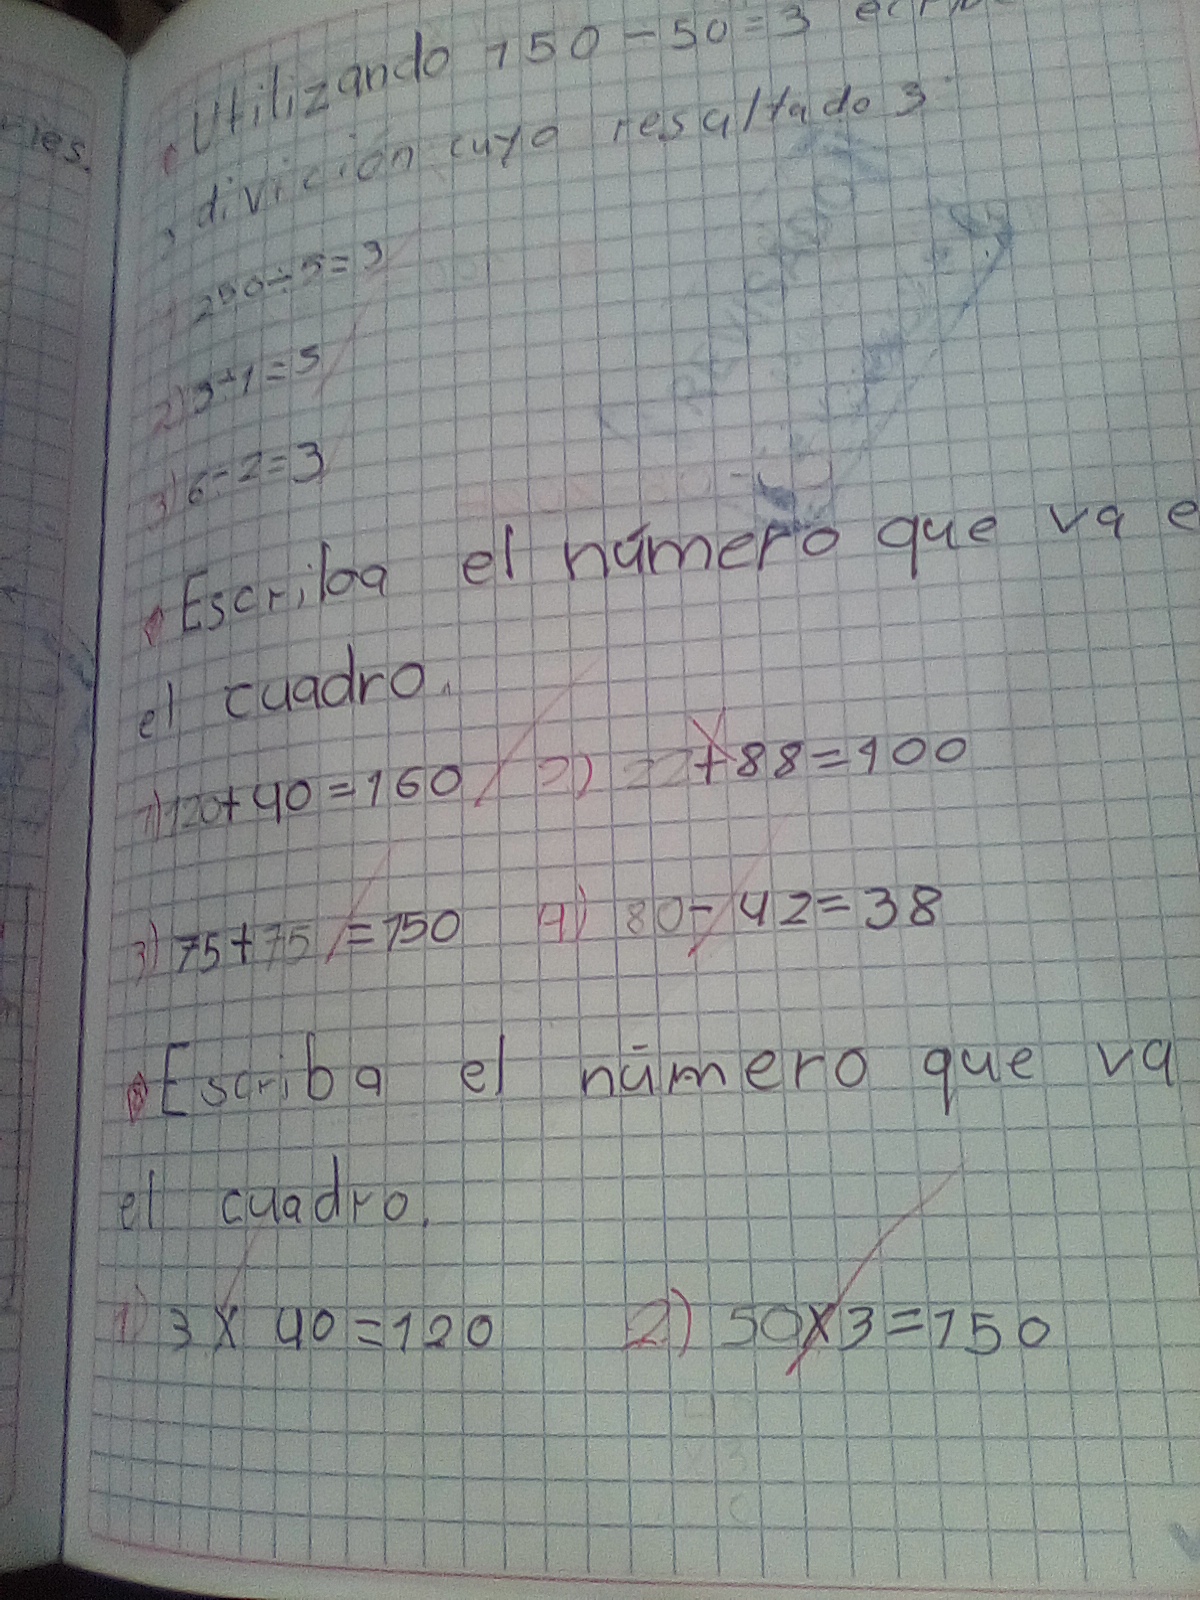 ies.
Utilizando 150÷50=3
3 divicion cuyo resaltado 3
1) 250÷5=3
2) 3÷1=5
3) 6÷2=3
Escriba el número que va e
el cuadro.
1) 120+40=160 2) 22+88=100
3) 75+75=150 4) 80-42=38
Escriba el número que va
el cuadro.
1) 3x40=120 2) 50x3=150